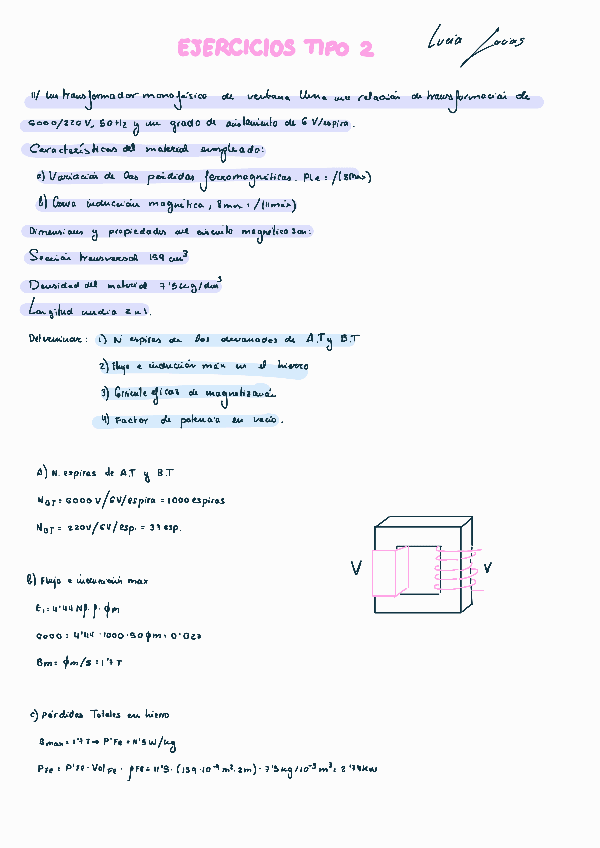 EJERCICIOS TIPO 2
Lucia
11/ Un transformador monofásico de ventana tiene una relación de transformación de
6000/220V, 50Hz y un grado de aislamiento de 6 V/espira.
Características del material empleado:
a) Variación de las pérdidas ferromagnéticas. PFe = f(Bmax)
b) Curva inducción magnética, Bmax = f(Hmáx)
Dimensiones y propiedades del circuito magnético son:
Sección transversal 159 cm³
Densidad del material 7'5kg/dm³
Longitud media 2m.
Determinar: 1) N espiras de los devanados de A.T y B.T
2) Flujo e inducción máx en el hierro
3) Corriente eficaz de magnetización
4) Factor de potencia en vacío.
A) N. espiras de A.T y B.T
= 6000V/6V/espira = 1000 espiras
NBT = 220V/6V/esp. = 37 esp.
V
V
b) Flujo e inducción max
E₁ = 4'44 Nf. f. ϕm
6000 = 4'44 · 1000 · 50 ϕm = 0'027
Bm = ϕm/S = 1'7T
c) Pérdidas Totales en hierro
Bmax = 1'7T → P'Fe = 11'5W/kg
PFe = P'Fe · VolFe · ρFe = 11'5 · (159·10⁻⁴m²·2m) · 7'5kg/10⁻³m³ = 2'74KW